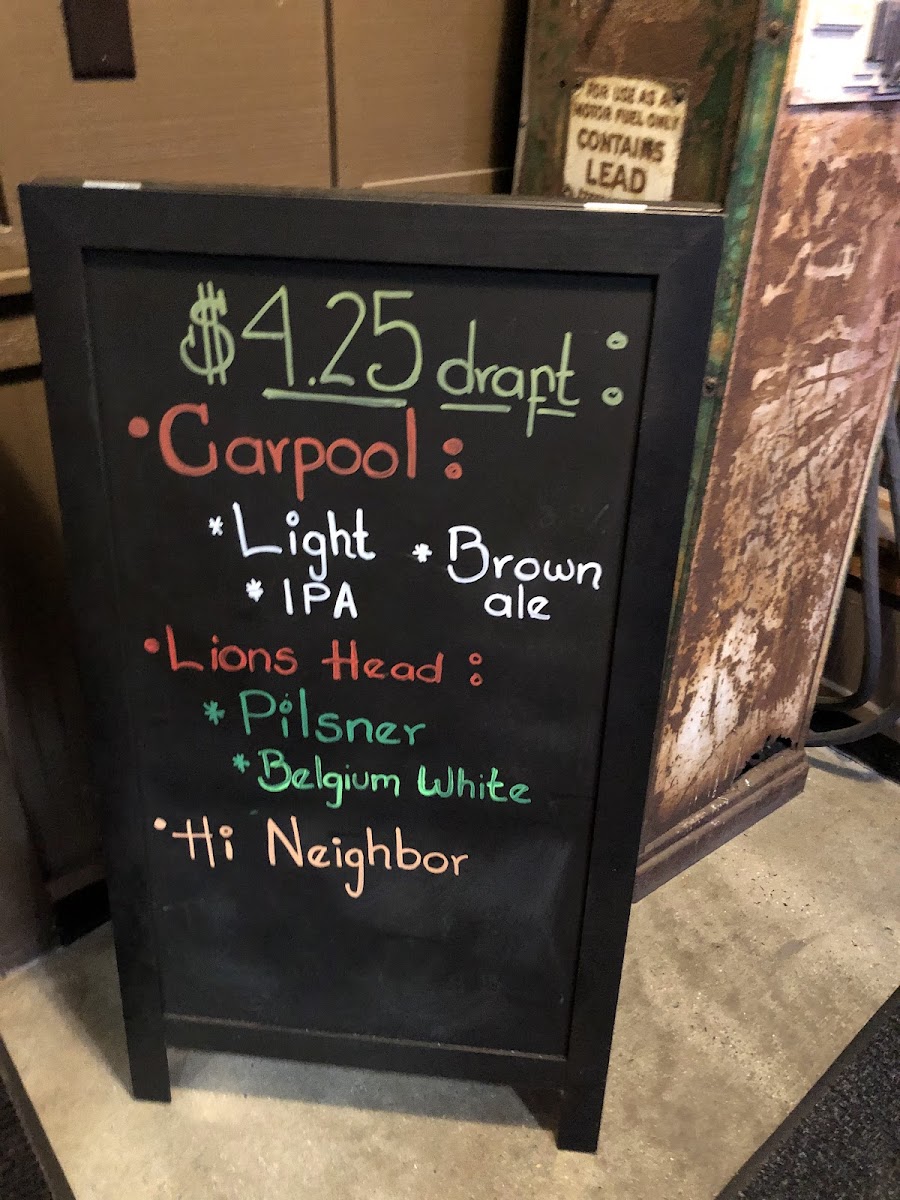 FOR USE AS A
MOTOR FUEL ONLY
CONTAINS
LEAD
$4.25 draft :
• Carpool :
* Light * Brown ale
* IPA
• Lions Head :
* Pilsner
* Belgium White
• Hi Neighbor